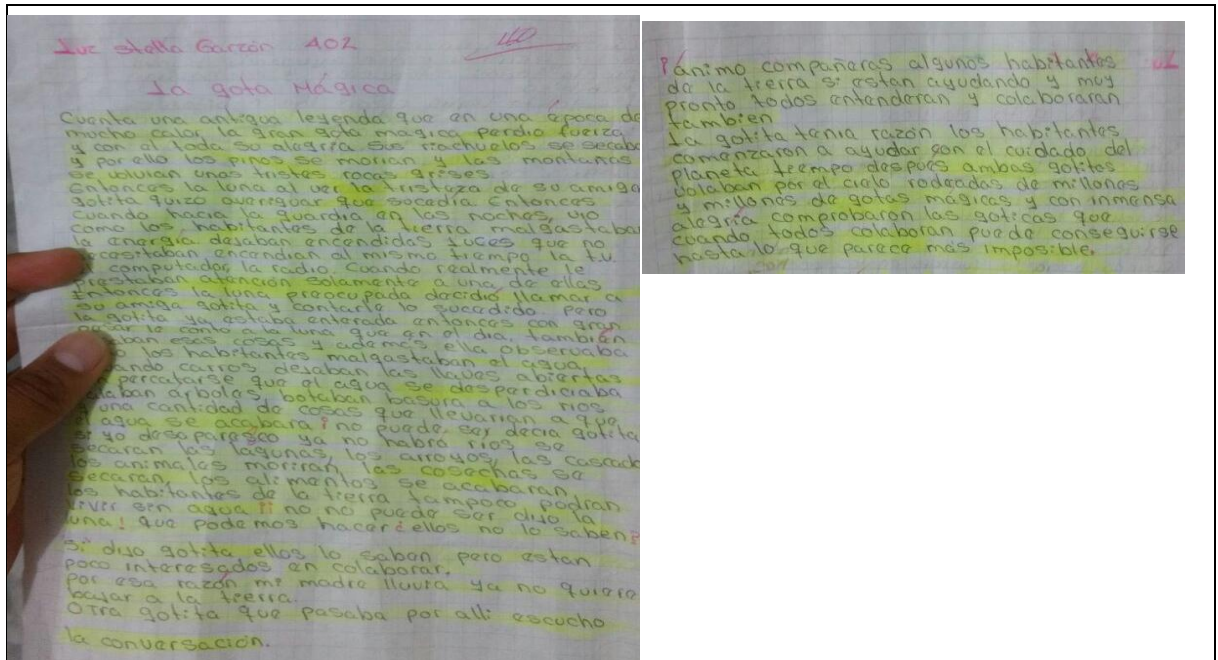 Luz stella Garzón 402
La gota Mágica
Cuenta una antigua leyenda que en una época de
mucho calor la gran gota magica perdio fuerza
y con el toda su alegría sus riachuelos se secaba
y por ello los pinos se morian y las montañas
se volvian unas tristes rocas grises.
Entonces la luna al ver la tristeza de su amiga
gotita quizo averiguar que sucedia Entonces
cuando hacia la guardia en las noches, vio
como los habitantes de la tierra malgastaba
la energia dejaban encendidas luces que no
cesitaban encendian al mismo tiempo la t.v.
computador la radio. Cuando realmente le
prestaban atención solamente a una de ellas
Entonces la luna preocupada decidió llamar a
su amiga gotita y contarle lo sucedido. Pero
la gotita ya estaba enterada entonces con gran
pesar le conto a la luna que en el dia, también
ban esas cosas y además ella observaba
los habitantes malgastaban el agua
ando carros dejaban las llaves abiertas
percatarse que el agua se desperdiciaba
laban árboles, botaban basura a los rios
una cantidad de cosas que llevarian a que
el agua se acabara ¡no puede ser decia gotita
si yo desaparesco ya no habra rios se
secaran las lagunas, los arroyos, las cascad
los animales moriran, las cosechas se
secaran, los alimentos se acabaran
los habitantes de la tierra tampoco podran
vivir sin agua ¡¡ no no puede ser dijo la
luna! que podemos hacer ¿ellos no lo saben?
Si dijo gotita ellos lo saben pero estan
poco interesados en colaborar.
por esa razón mi madre lluvia ya no quiere
bajar a la tierra.
Otra gotita que pasaba por alli escucho
la conversación.
ánimo compañeras algunos habitantes
de la tierra si estan ayudando y muy
pronto todos entenderan y colaboraran
tambien
La gotita tenia razón los habitantes
comenzaron a ayudar con el cuidado del
planeta tiempo después ambas gotitas
volaban por el cielo rodeadas de millones
y millones de gotas magicas y con inmensa
alegría comprobaron las goticas que
cuando todos colaboran puede conseguirse
hasta lo que parece más imposible.